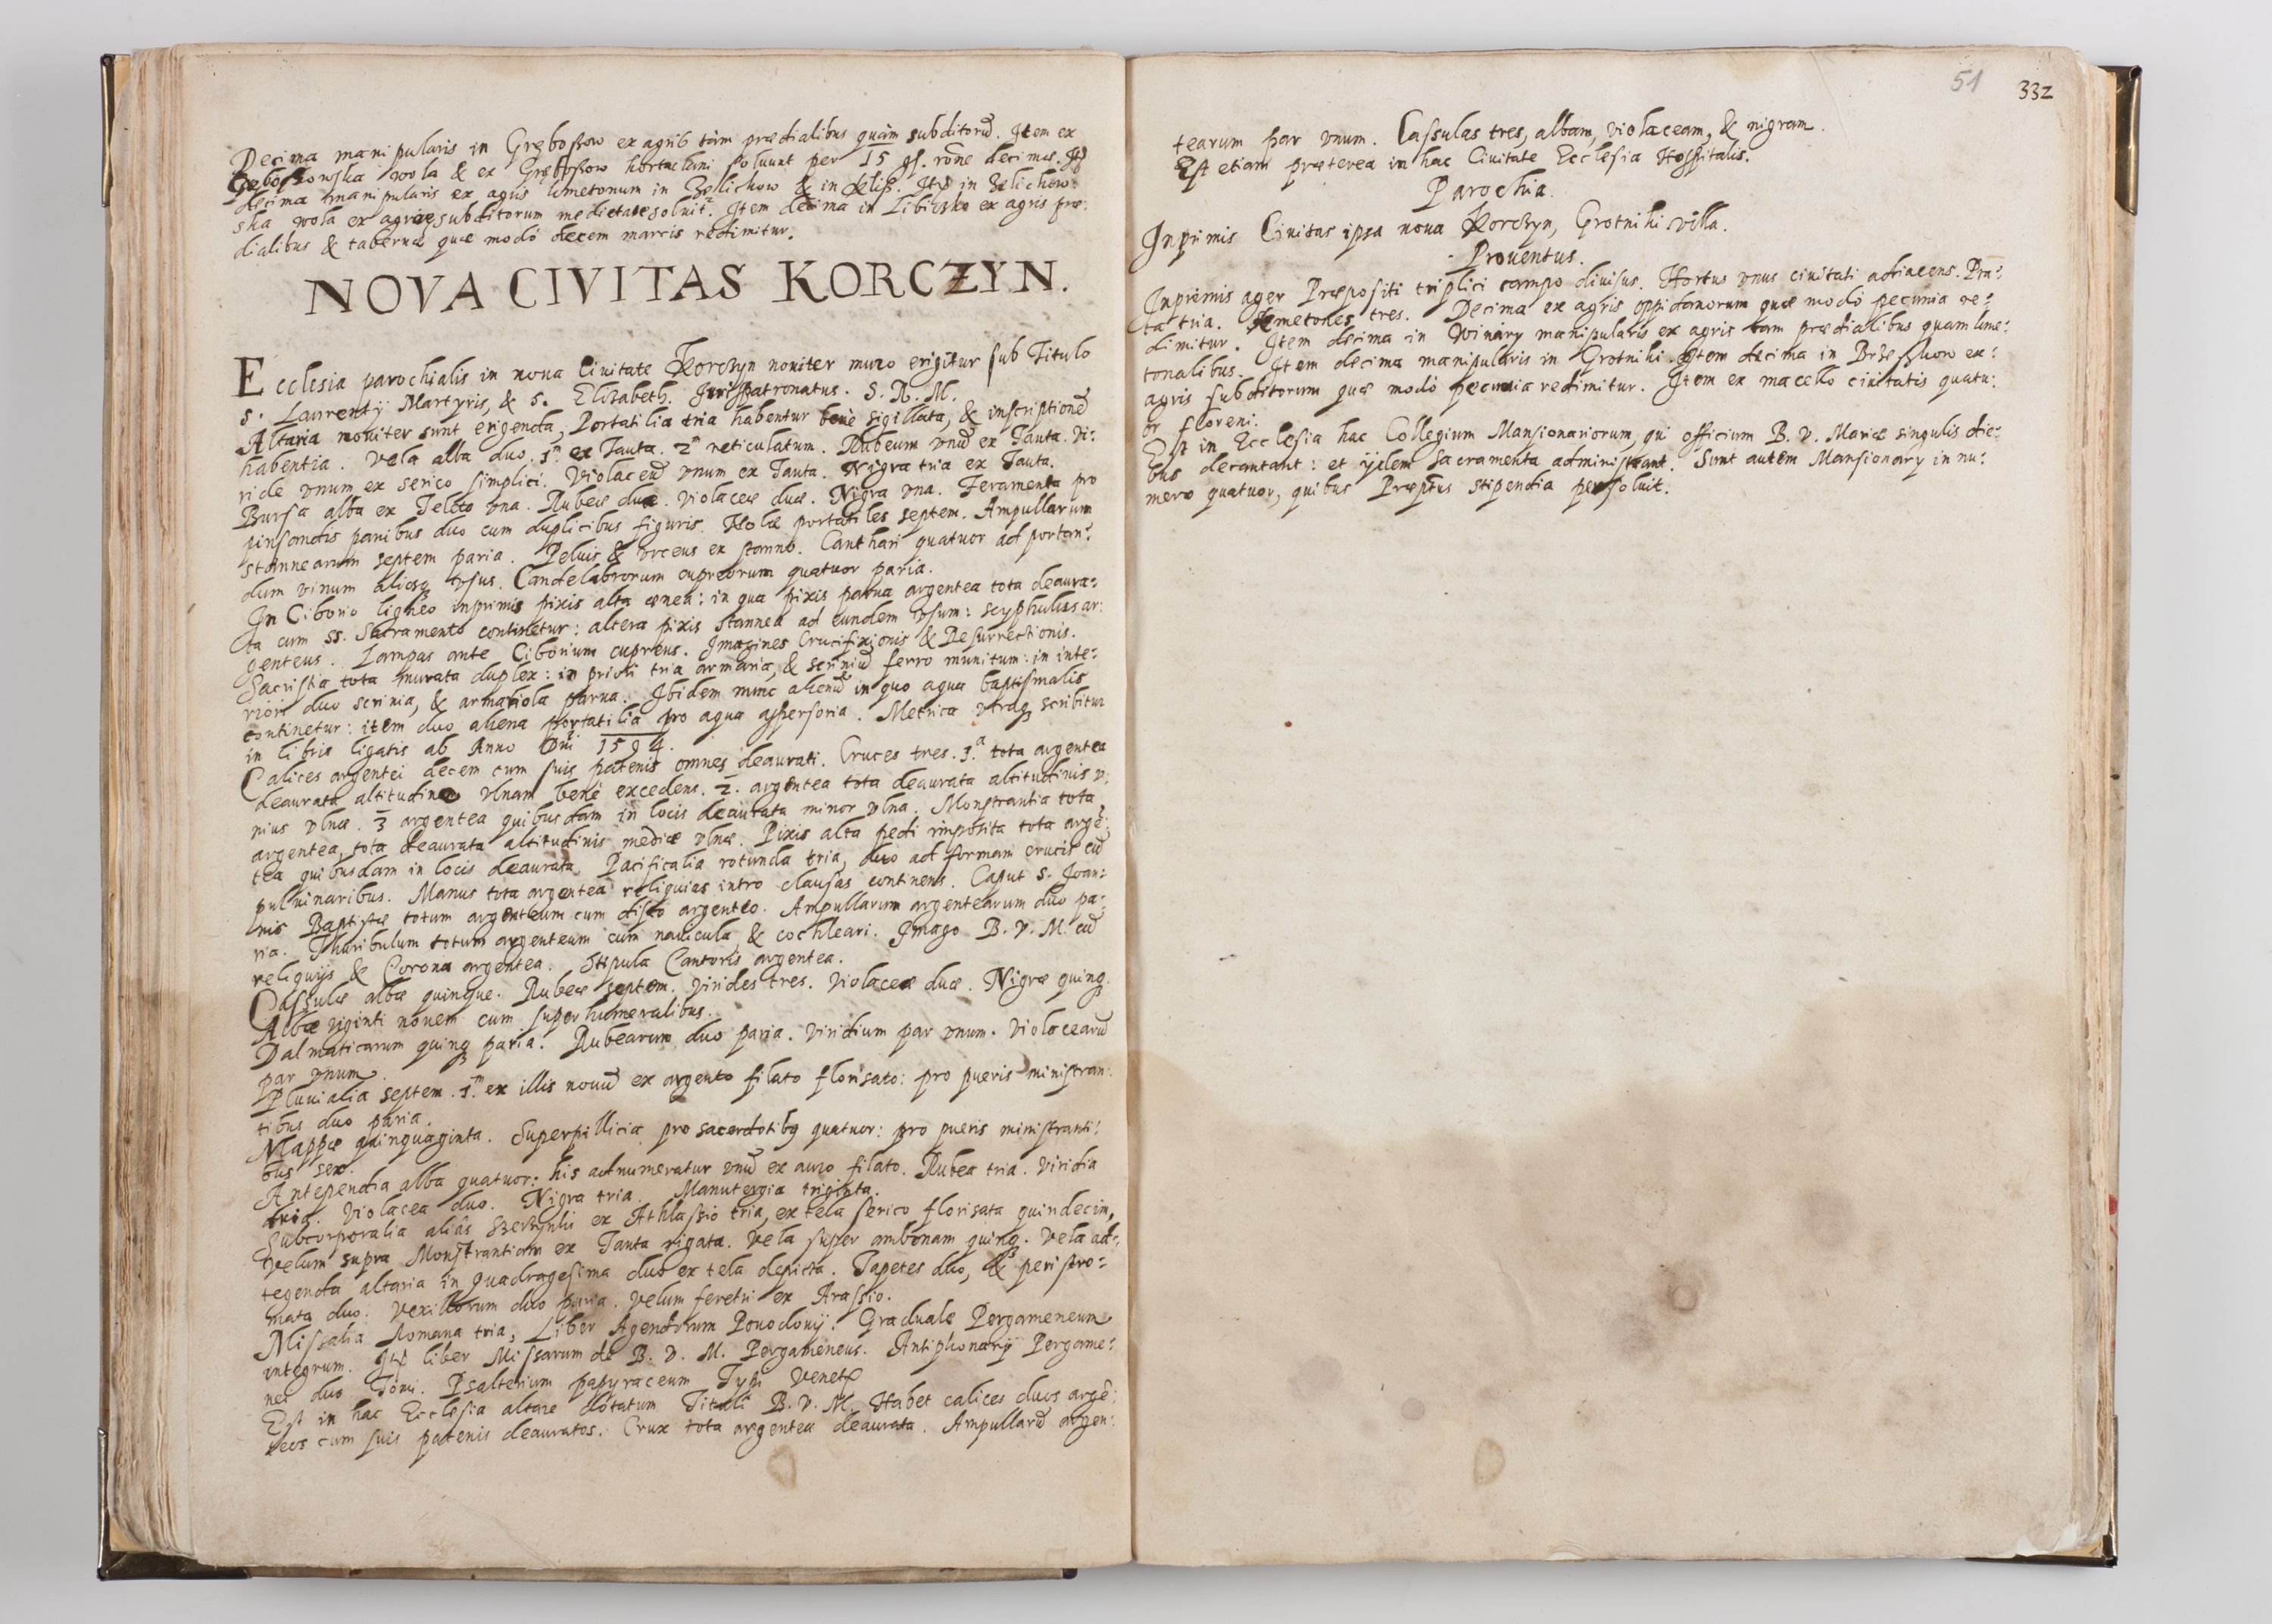 Decima manipularis in Gręboszow ex agris tàm prædialibus quàm subditorũ. Item ex
Gębossowska wola & ex Gręboszow hortulani soluunt per 15 gs. rõne decimæ. Itẽ
decima manipularis ex agris kmetonum in Zelichow & in Itẽ in Zelichow:
ska wola ex agris subditorum medietate soluit. Item decima in ex agris præ:
dialibus & tabernæ quæ modò decem marcis redimitur.
NOVA CIVITAS KORCZYN.
Ecclesia parochialis in noua Ciuitate Korczyn nouiter muro erigitur sub Titulo
S. Laurentÿ Martyris, & S. Elizabeth. Jurispatronatus. S. R. M.
Altaria nouiter sunt erigenda, Portatilia tria habentur benè sigillata, & inscriptionẽ
habentia. Vela alba duo. 1m ex Tauta. 2m reticulatum. Rubeum vnũ ex Tauta. Vi:
ride vnum ex serico simplici. Violaceũ vnum ex Tauta. Nigra tria ex Tauta.
Bursa alba ex Teleto vna. Rubeæ duæ. Violaceæ duæ. Nigra vna. Feramenta pro
pinsandis panibus duo cum duplicibus figuris. portatiles septem. Ampullarum
stannearum septem paria. Peluis & vrceus ex stanno. Canthari quatuor ad portan:
dum vinum aliosq vsus. Candelabrorum cupreorum quatuor paria.
In Ciborio ligneo inprimis pixis alta ænea: in qua pixis parua argentea tota deaura:
ta cum SS. Sacramento continetur: altera pixis stannea ad eundem vsum: scyphulus ar:
genteus. Lampas ante Ciborium cupreus. Imagines Crucifixionis & Resurrectionis.
Sacristia tota murata duplex: in priori tria armaria, & scriniũ ferro munitum: in inte:
riori duo scrinia, & armariola parua. Ibidem nunc ahenũ in quo aqua baptismalis
continetur: item duo ahena portatilia pro aqua aspersoria. Metrica vtraq scribitur
in libris ligatis ab Anno Dni 1594.
Calices argentei decem cum suis patenis omnes deaurati. Cruces tres. 1.a tota argentea
deaurata altitudine vlnam benè excedens. 2. argentea tota deaurata altitudinis v:
nius vlnæ. 3 argentea quibusdam in locis deaurata minor vlna. Monstrantia tota
argentea, tota deaurata altitudinis mediæ vlnæ. Pixis alta pedi imposita tota argẽ:
tea quibusdam in locis deaurata. Pacificalia rotunda tria, duo ad formam crucis cũ
puluinaribus. Manus tota argentea reliquias intro clausas continens. Caput S. Joan:
nis Baptistæ totum argenteum cum disco argenteo. Ampullarum argentearum duo pa:
ria. Thuribulum totum argenteum cum nauicula, & cochleari. Imago B. V. M. cũ
reliquijs & Corona argentea. Stipula Cantoris argentea.
Casulæ albæ quinque. Rubeæ septem. Virides tres. Violaceæ duæ. Nigræ quinq.
Albæ viginti nouem cum superhumeralibus.
Dalmaticarum quinq paria. Rubearum duo paria. Viridium par vnum. Violacearũ
par vnum.
Pluuialia septem. 1.m ex illis nouũ ex argento filato florisato: pro pueris ministran:
tibus duo paria.
Mappæ quinquaginta. Superpillicia pro sacerdotibq quatuor: pro pueris ministranti:
bus sex.
Antependia alba quatuor: his adnumeratur vnũ ex auro filato. Rubea tria. Viridia
tria. Violacea duo. Nigra tria. Manutergia triginta.
Subcorporalia aliàs ex Athlassio tria, ex tela serico florisata quindecim.
Velum supra Monstrantiam ex Tauta rigata. Vela super ambonam quinq. Vela ad:
tegenda altaria in quadragesima duo ex tela depicta. Tapetes duo, & peristro:
mata duo. Vexillorum duo paria. Velum feretri ex Arassio.
Missalia Romana tria, Liber Agendorum Pouodouij. Graduale Pergameneum
integrum. Itẽ liber Missarum de B. V. M. Pergameneus. Antiphonarij Pergame:
nei duo Tomi. Psalterium papyraceum Typi Venetẽ
Est in hac Ecclesia altare dotatum Tituli B. V. M. Habet calices duos argẽ:
teos cum suis patenis deauratos. Crux tota argentea deaurata. Ampullarũ argen:
51
332
tearum par vnum. Casulas tres, albam, violaceam, & nigram.
Est etiam præterea in hac Ciuitate Ecclesia Hospitalis.
Parochia.
Inprimis Ciuitas ipsa noua Korczyn, Grotniki villa.
Prouentus.
Inprimis ager Præpositi triplici campo diuisus. Hortus vnus ciuitati adiacens. Pra:
ta tria. Kmetones tres. Decima ex agris oppidanorum quæ modò pecunia re:
dimitur. Item decima in Winiary manipularis ex agris tam prædialibus quam kme:
tonalibus. Item decima manipularis in Grotniki. Item decima in Brzeszkow ex:
agris subditorum quæ modò pecunia redimitur. Item ex macello ciuitatis quatu:
or floreni.
Est in Ecclesia hac Collegium Mansionariorum, qui officium B. V. Mariæ singulis die:
bus decantant: et ijdem sacramenta administrant. Sunt autem Mansionarij in nu:
mero quatuor, quibus Præptus stipendia persoluit.